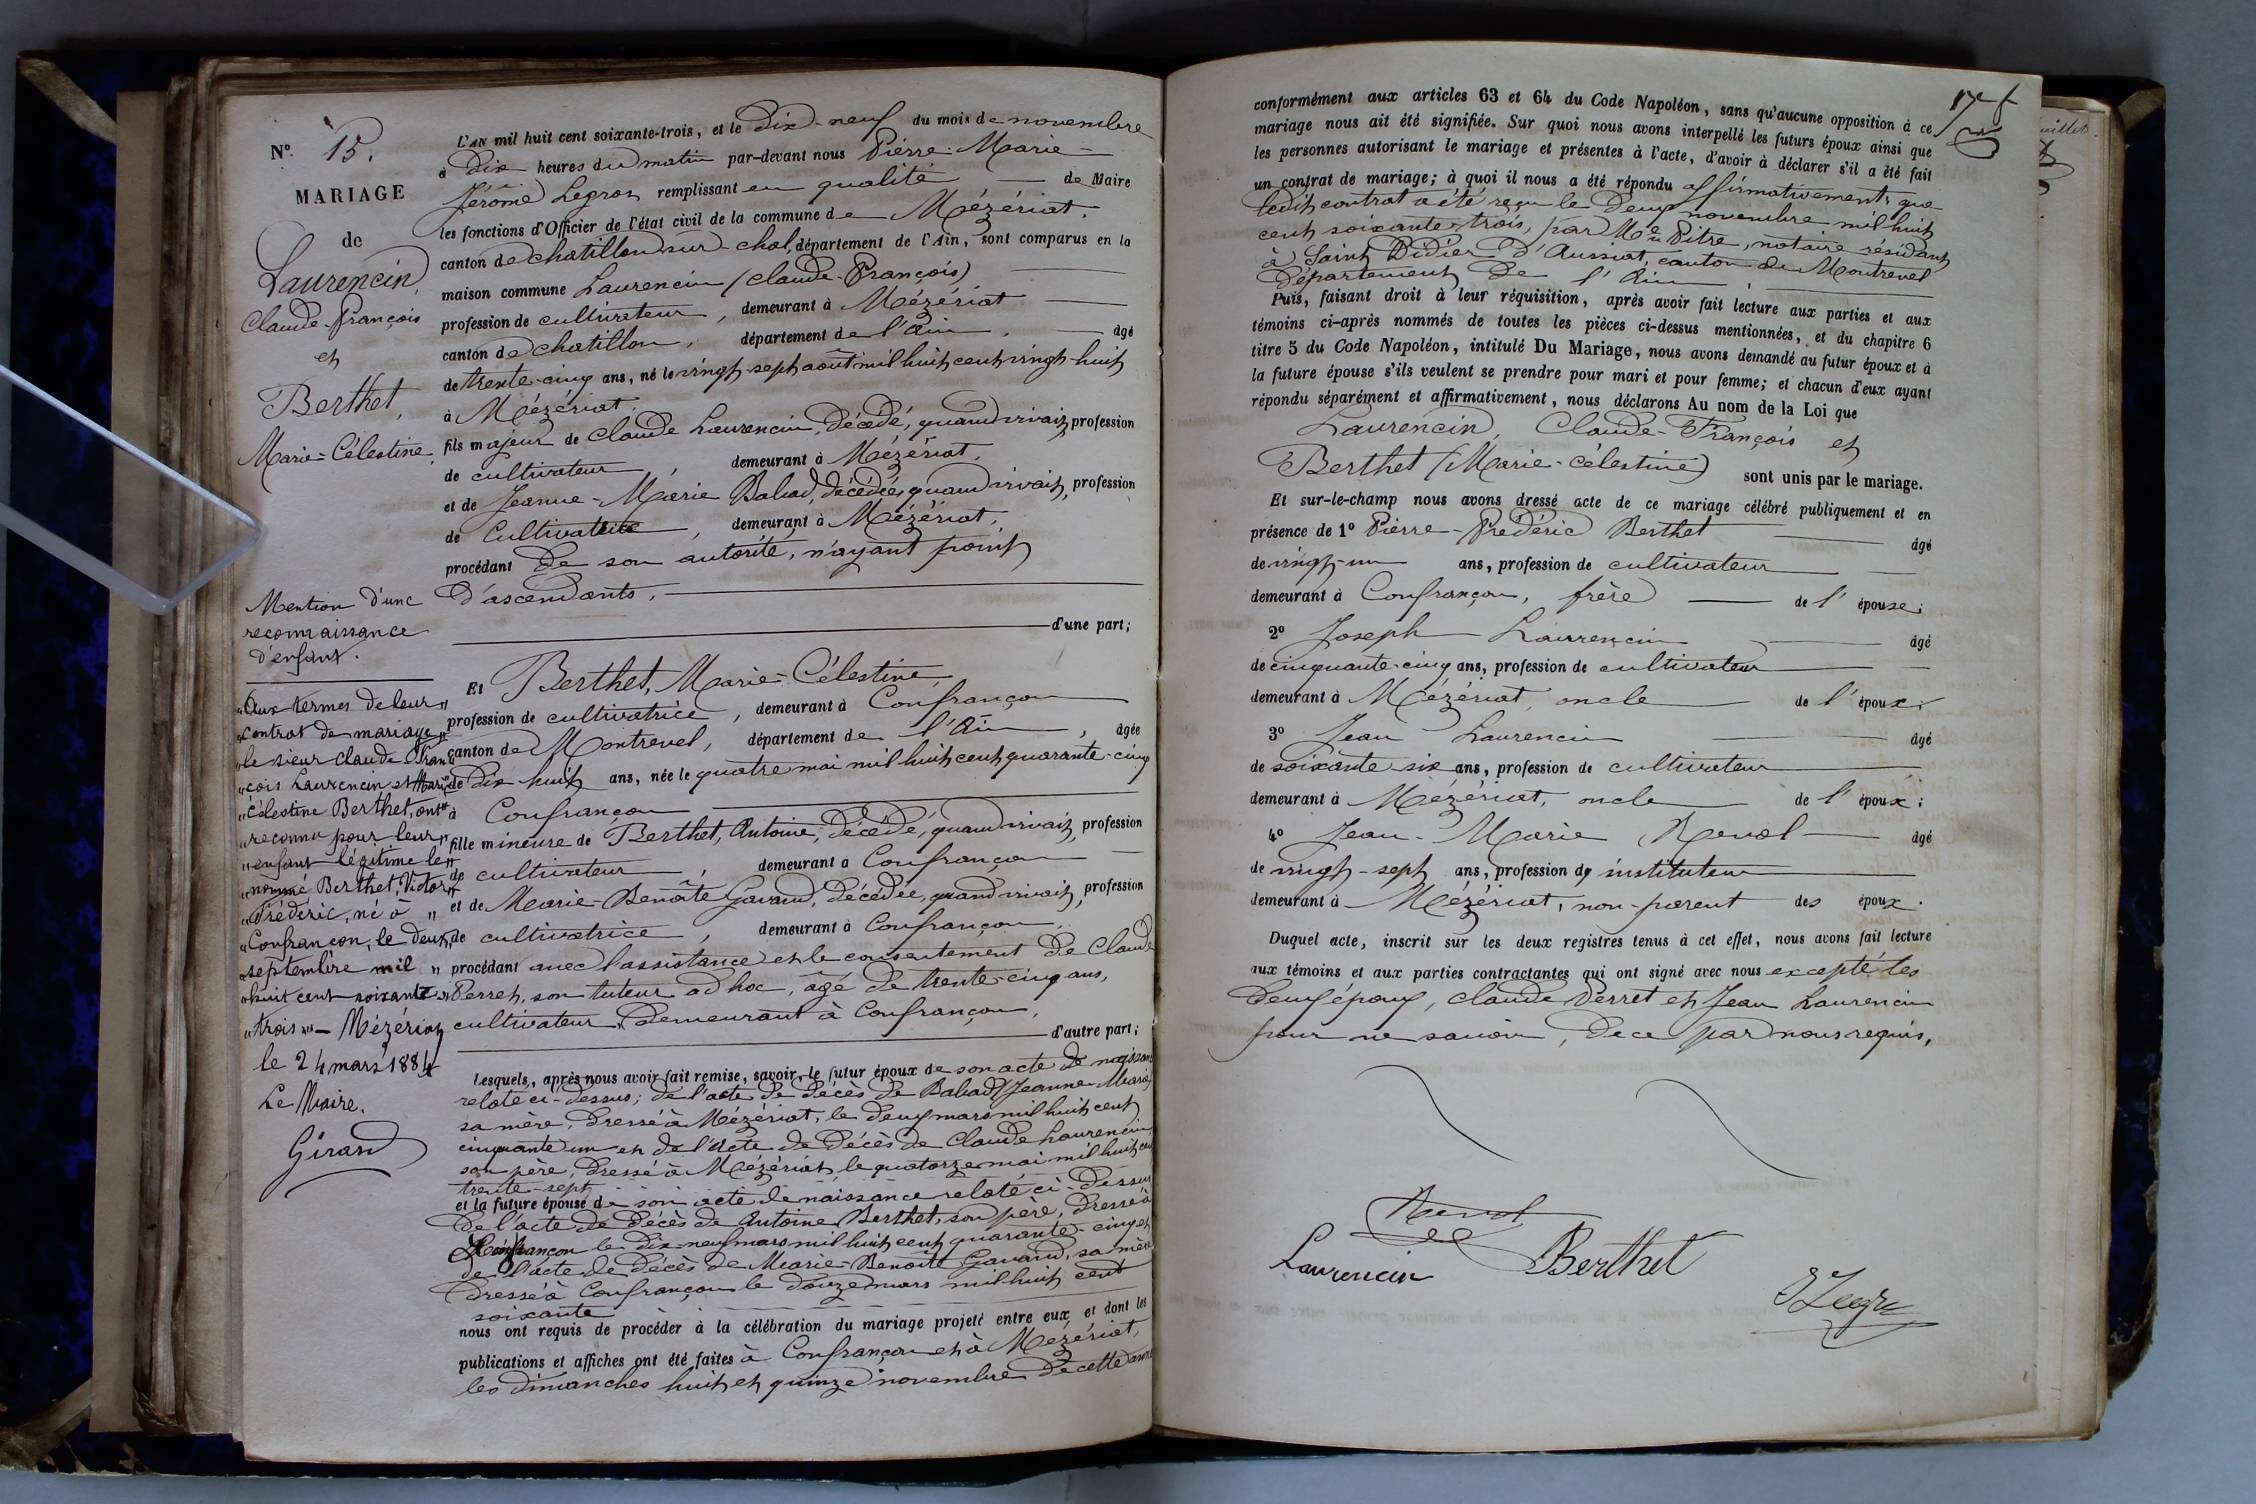 N° 15.
MARIAGE
de
Laurencin,
Claude-François
et
Berthet,
Marie-Célestine.
Mention d'une
reconnaissance
d'enfant.
"Aux termes de leur"
"contrat de mariage"
"le sieur Claude Fran"
"çois Laurencin et Marie"
"Célestine Berthet, ont"
"reconnu pour leur"
"enfant légitime le"
"nommé Berthet, Victor"
"Frédéric, né à "
"Confrançon, le deux"
"septembre mil "
"huit cent soixante "
"trois" - Mézériat
le 24 mars 1884
Le Maire.
Girard
L'AN mil huit cent soixante-trois, et le Dix-neuf du mois de novembre
à Dix heures du matin par-devant nous Pierre-Marie-
Jérôme Legros remplissant en qualité de Maire
les fonctions d'Officier de l'état civil de la commune de Mézériat.
canton de chatillon sur chal, département de l'Ain, sont comparus en la
maison commune Laurencin (Claude-François)
profession de cultivateur, demeurant à Mézériat
canton de chatillon, département de l'Ain, âgé
de trente-cinq ans, né le vingt-sept août mil huit cent vingt-huit
à Mézériat.
fils majeur de Claude Laurencin, décédé, quand vivait, profession
de cultivateur, demeurant à Mézériat.
et de Jeanne-Marie Babad, décédée, quand vivait, profession
de Cultivatrice, demeurant à Mézériat,
procédant de son autorité, n'ayant point
d'ascendants.
d'une part;
Et Berthet, Marie-Célestine,
profession de cultivatrice, demeurant à Confrançon
canton de Montrevel, département de l'Ain, âgée
de dix huit ans, née le quatre mai mil huit cent quarante-cinq
à Confrançon
fille mineure de Berthet, Antoine, décédé, quand vivait, profession
de cultivateur, demeurant à Confrançon
et de Marie-Benoîte Gavand, décédée, quand vivait, profession
de cultivatrice, demeurant à Confrançon,
procédant avec l'assistance et le consentement de Claude
Perret, son tuteur ad hoc, âgé de trente-cinq ans,
cultivateur, demeurant à Confrançon,
d'autre part;
Lesquels, après nous avoir fait remise, savoir, le futur époux de son acte de naissance
relaté ci-dessus; de l'acte de décès de Babad (Jeanne-Marie)
sa mère, dressé à Mézériat, le deux mars mil huit cent
cinquante un et de l'acte de décès de Claude Laurencin
son père, dressé à Mézériat le quatorze mai mil huit cent
trente-sept
et la future épouse de son acte de naissance relaté ci-dessus
de l'acte de décès de Antoine Berthet, son père, dressé à
Confrançon le dix-neuf mars mil huit cent quarante-cinq et
de l'acte de décès de Marie-Benoîte Gavand, sa mère
dressé à Confrançon le douze mars mil huit cent
soixante
nous ont requis de procéder à la célébration du mariage projeté entre eux, et dont les
publications et affiches ont été faites à Confrançon et à Mézériat,
les dimanches huit et quinze novembre de cette année
conformément aux articles 63 et 64 du Code Napoléon, sans qu'aucune opposition à ce
mariage nous ait été signifiée. Sur quoi nous avons interpellé les futurs époux ainsi que
les personnes autorisant le mariage et présentes à l'acte, d'avoir à déclarer s'il a été fait
un contrat de mariage; à quoi il nous a été répondu affirmativement, que
ledit contrat a été reçu le deux novembre mil huit
cent soixante-trois, par Me Pitre, notaire résidant
à Saint Didier d'Aussiat, canton de Montrevel
Département de l'Ain
Puis, faisant droit à leur réquisition, après avoir fait lecture aux parties et aux
témoins ci-après nommés de toutes les pièces ci-dessus mentionnées, et du chapitre 6
titre 5 du Code Napoléon, intitulé Du Mariage, nous avons demandé au futur époux et à
la future épouse s'ils veulent se prendre pour mari et pour femme; et chacun d'eux ayant
répondu séparément et affirmativement, nous déclarons Au nom de la Loi que
Laurencin, Claude-François et
Berthet (Marie-Célestine) sont unis par le mariage.
Et sur-le-champ nous avons dressé acte de ce mariage célébré publiquement et en
présence de 1° Pierre-Frédéric Berthet âgé
de vingt-un ans, profession de cultivateur
demeurant à Confrançon, frère de l'épouse;
2° Joseph Laurencin âgé
de cinquante-cinq ans, profession de cultivateur
demeurant à Mézériat, oncle de l'époux;
3° Jean Laurencin âgé
de soixante-six ans, profession de cultivateur
demeurant à Mézériat, oncle de l'époux;
4° Jean-Marie Revol âgé
de vingt-sept ans, profession d' instituteur
demeurant à Mézériat, non-parent des époux.
Duquel acte, inscrit sur les deux registres tenus à cet effet, nous avons fait lecture
aux témoins et aux parties contractantes qui ont signé avec nous excepté les
deux époux, Claude Perret et Jean Laurencin
pour ne savoir, de ce par nous requis,
Revol
Laurencin Berthet